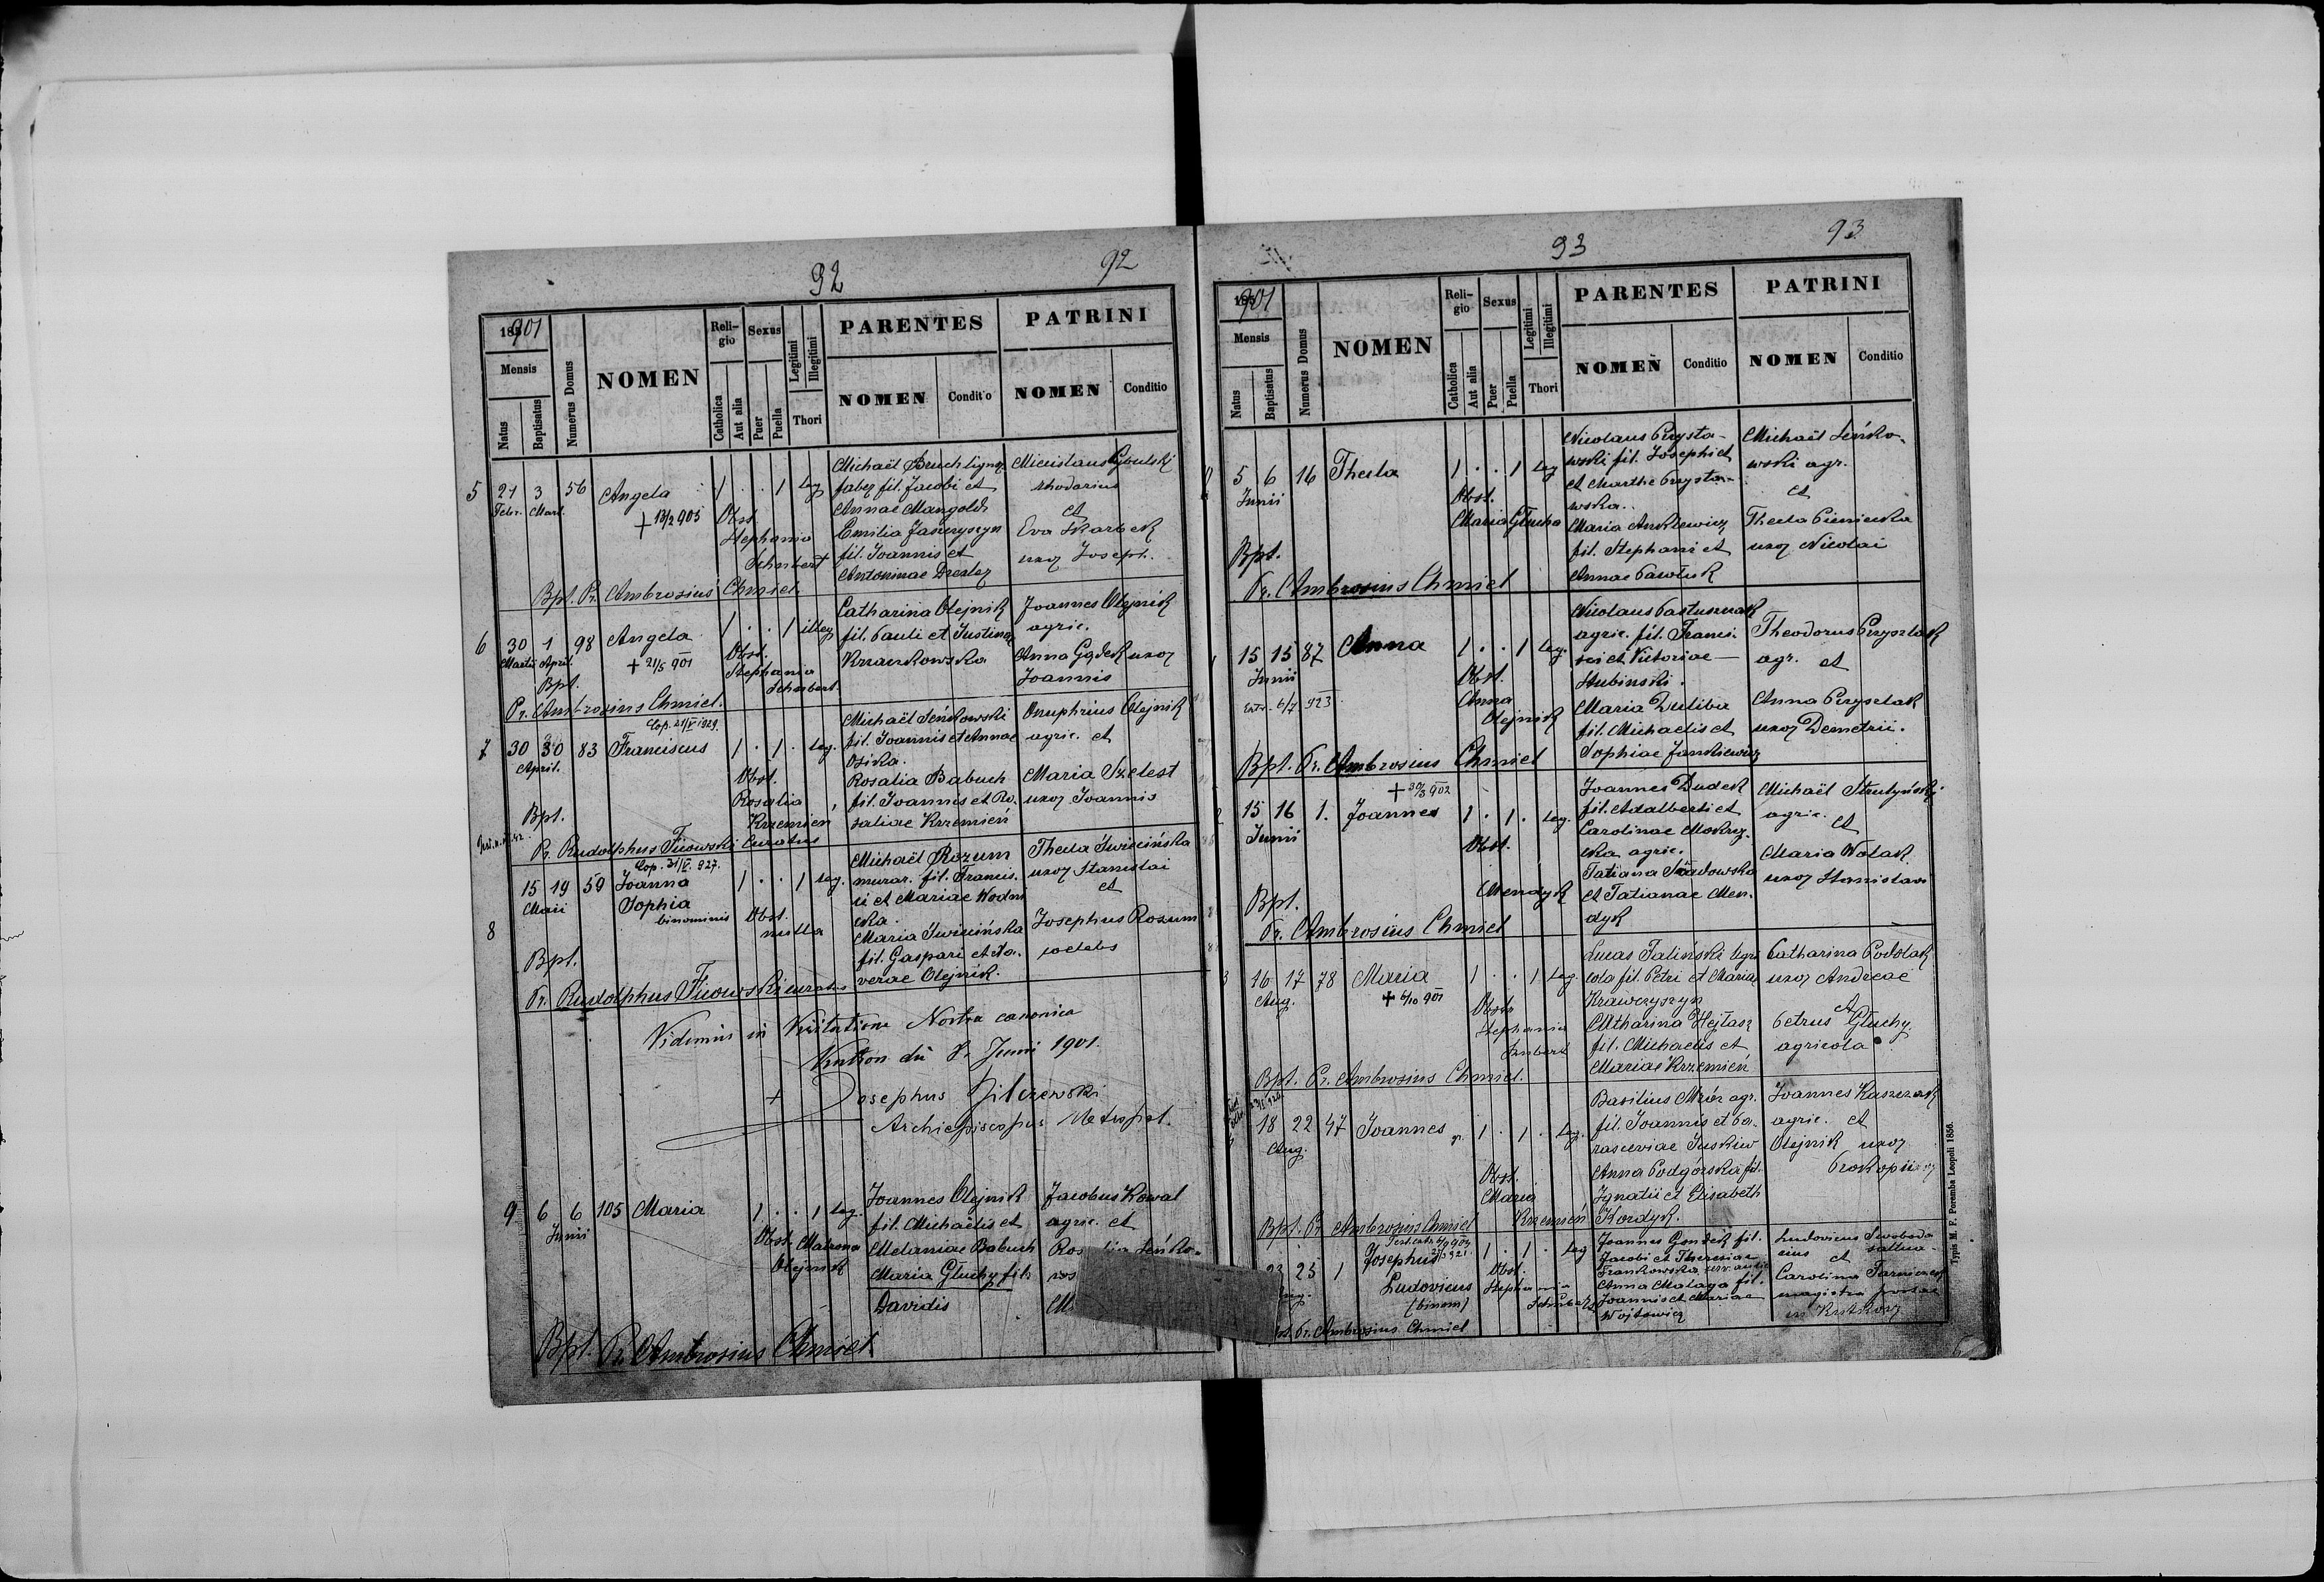 92 92
1901
Mensis
Natus Baptisatus
Numerus Domus
NOMEN
Religio
Catholica Aut alia
Sexus
Puer Puella
Legitimi Illegitimi
Thori
PARENTES
NOMEN Conditio
PATRINI
NOMEN Conditio
5 21 3 56 Angela 1 . . 1 Leg.
Febr. Mart.
+ 13/2 905
Obst.
Stephania
Schubert
Michaël Bruch
faber fil. Jacobi et
Annae Mangold
Emilia Jaszczyszyn
fil. Joannis et
Antoninae Drexler
Miecislaus Cybulski
rhodarius
et
Eva Skarbek
uxor Joseph.
Bpt. Pr. Ambrosius Chmiel.
6 30 1 98 Angela 1 . . 1 illeg
Martii April.
+ 21/5 901
Obst.
Stephania
Schubert.
Catharina Olejnik
fil. Pauli et Justinae
Krzaczkowska
Joannes Olejnik
agric.
Anna Gądek uxor
Joannis
Bpt.
Pr. Ambrosius Chmiel.
Cop. 21/V 1929.
7 30 30 83 Franciscus 1 . 1 . Leg.
April.
Obst.
Rosalia
Krzemień
Michaël Seńkowski
fil. Joannis et Annae
Osika.
Rosalia Babuch
fil. Joannis et Ro-
saliae Krzemień
Onuphrius Olejnik
agric. et
Maria Szelest
uxor Joannis
Bpt.
Pr. Rudolphus Ficowski curatus
Cop. 31/V. 927.
8 15 19 59 Joanna 1 . . 1 Leg.
Maii
Sophia
binominis
Obst.
nulla
Michaël Rozum
murar. fil. Francis-
ci et Mariae Wodni
cka.
Maria Świecińska
fil. Gaspari et Xa-
verae Olejnik.
Thecla Świecińska
uxor Stanislai
et
Josephus Rozum
coelebs
Bpt.
Pr. Rudolphus Ficowski curatus
Vidimus in Visitatione Nostra canonica
Kutkorz die 8. Junii 1901.
+ Josephus Bilczewski
Archiepiscopus Metropol.
9 6 6 105 Maria 1 . . 1 Leg.
Junii
Obst. Matrona
Olejnik
Joannes Olejnik
fil. Michaëlis et
Melaniae Babuch
Maria Głuchy fil.
Davidis
Jacobus Kowal
agric. et
Bpt. Pr. Ambrosius Chmiel.
93 93
1901
Mensis
Natus Baptisatus
Numerus Domus
NOMEN
Religio
Catholica Aut alia
Sexus
Puer Puella
Legitimi Illegitimi
Thori
PARENTES
NOMEN Conditio
PATRINI
NOMEN Conditio
5 6 16 Thecla 1 . . 1 Leg
Junii
Obst.
Maria Głucha
Nicolaus Przysta-
wski fil. Josephi et
et Marthe Przysta-
wska.
Maria Anklewicz
fil. Stephani et
Annae Pawluk
Michaël Seńko-
wski agr.
et
Thecla Pieniecka
uxor Nicolai
Bpt.
Pr. Ambrosius Chmiel
15 15 87 Anna 1 . . 1 Leg.
Junii
6/7 923
Obst.
Anna
Olejnik
Nicolaus Pastuszczak
agric. fil. Franci-
sci et Victoriae
Stubinski.
Maria Duliba
fil. Michaelis et
Sophiae Jankiewicz
Theodorus Przyszlak
agr. et
Anna Przyszlak
uxor Demetrii.
Bpt. Pr. Ambrosius Chmiel
+ 30/3 902
15 16 1. Joannes 1 . 1 . Leg.
Junii
Obst.
Mendyk
Joannes Dudek
fil. Adalberti et
Carolinae Mokrzy-
cka agric.
Tatiana Sadowska
et Tatianae Men-
dyk
Michaël Strutyński
agric.
et
Maria Wolak
uxor Stanislavi
Bpt.
Pr. Ambrosius Chmiel
3 16 17 78 Maria 1 . . 1 Leg.
Aug.
+ 6/10 901
Obst.
Stephania
Schubert
Lucas Faliński agri
cola fil. Petri et Mariae
Krawczyszyn
Catharina Hejłasz
fil. Michaelis et
Mariae Krzemień
Catharina Podolak
uxor Andreae
et
Petrus Głuchy
agricola
Bpt. Pr. Ambrosius Chmiel.
18 22 47 Joannes 1 . 1 . Leg.
Aug.
Obst.
Maria
Krzemień
Basilius Mróz agr.
fil. Joannis et Pa-
rasceviae Juskiw
Anna Podgórska fil.
Ignatii et Elisabeth
Kordyk.
Joannes Kaszczak
agric. et
Olejnik uxor
Prokopii
Bpt. Pr. Ambrosius Chmiel
23 25 1 Josephus 1 . 1 . Leg
Ludovicus
(binom)
Obst.
Stephania
Schubert
Joannes fil.
Jacobi et Theresiae
Frankowska
Anna Malaga fil.
Joannis et Mariae
Wojtowicz
Ludovicus Swoboda
et
Carolina Tarniecka
magistra
in Kutkorz
Pr. Ambrosius Chmiel
Typis M. F. Poremba Leopoli 1856.